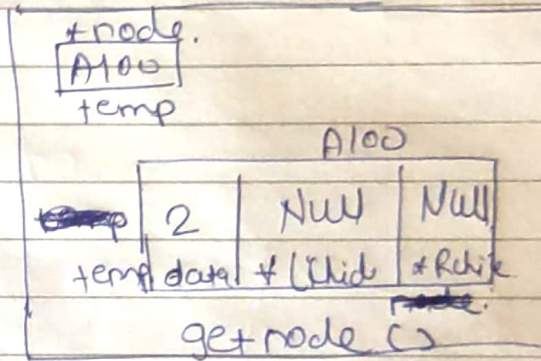 *node.
A100
temp
A100
2 Null Null
temp data *LChid *Rchik
getnode ()